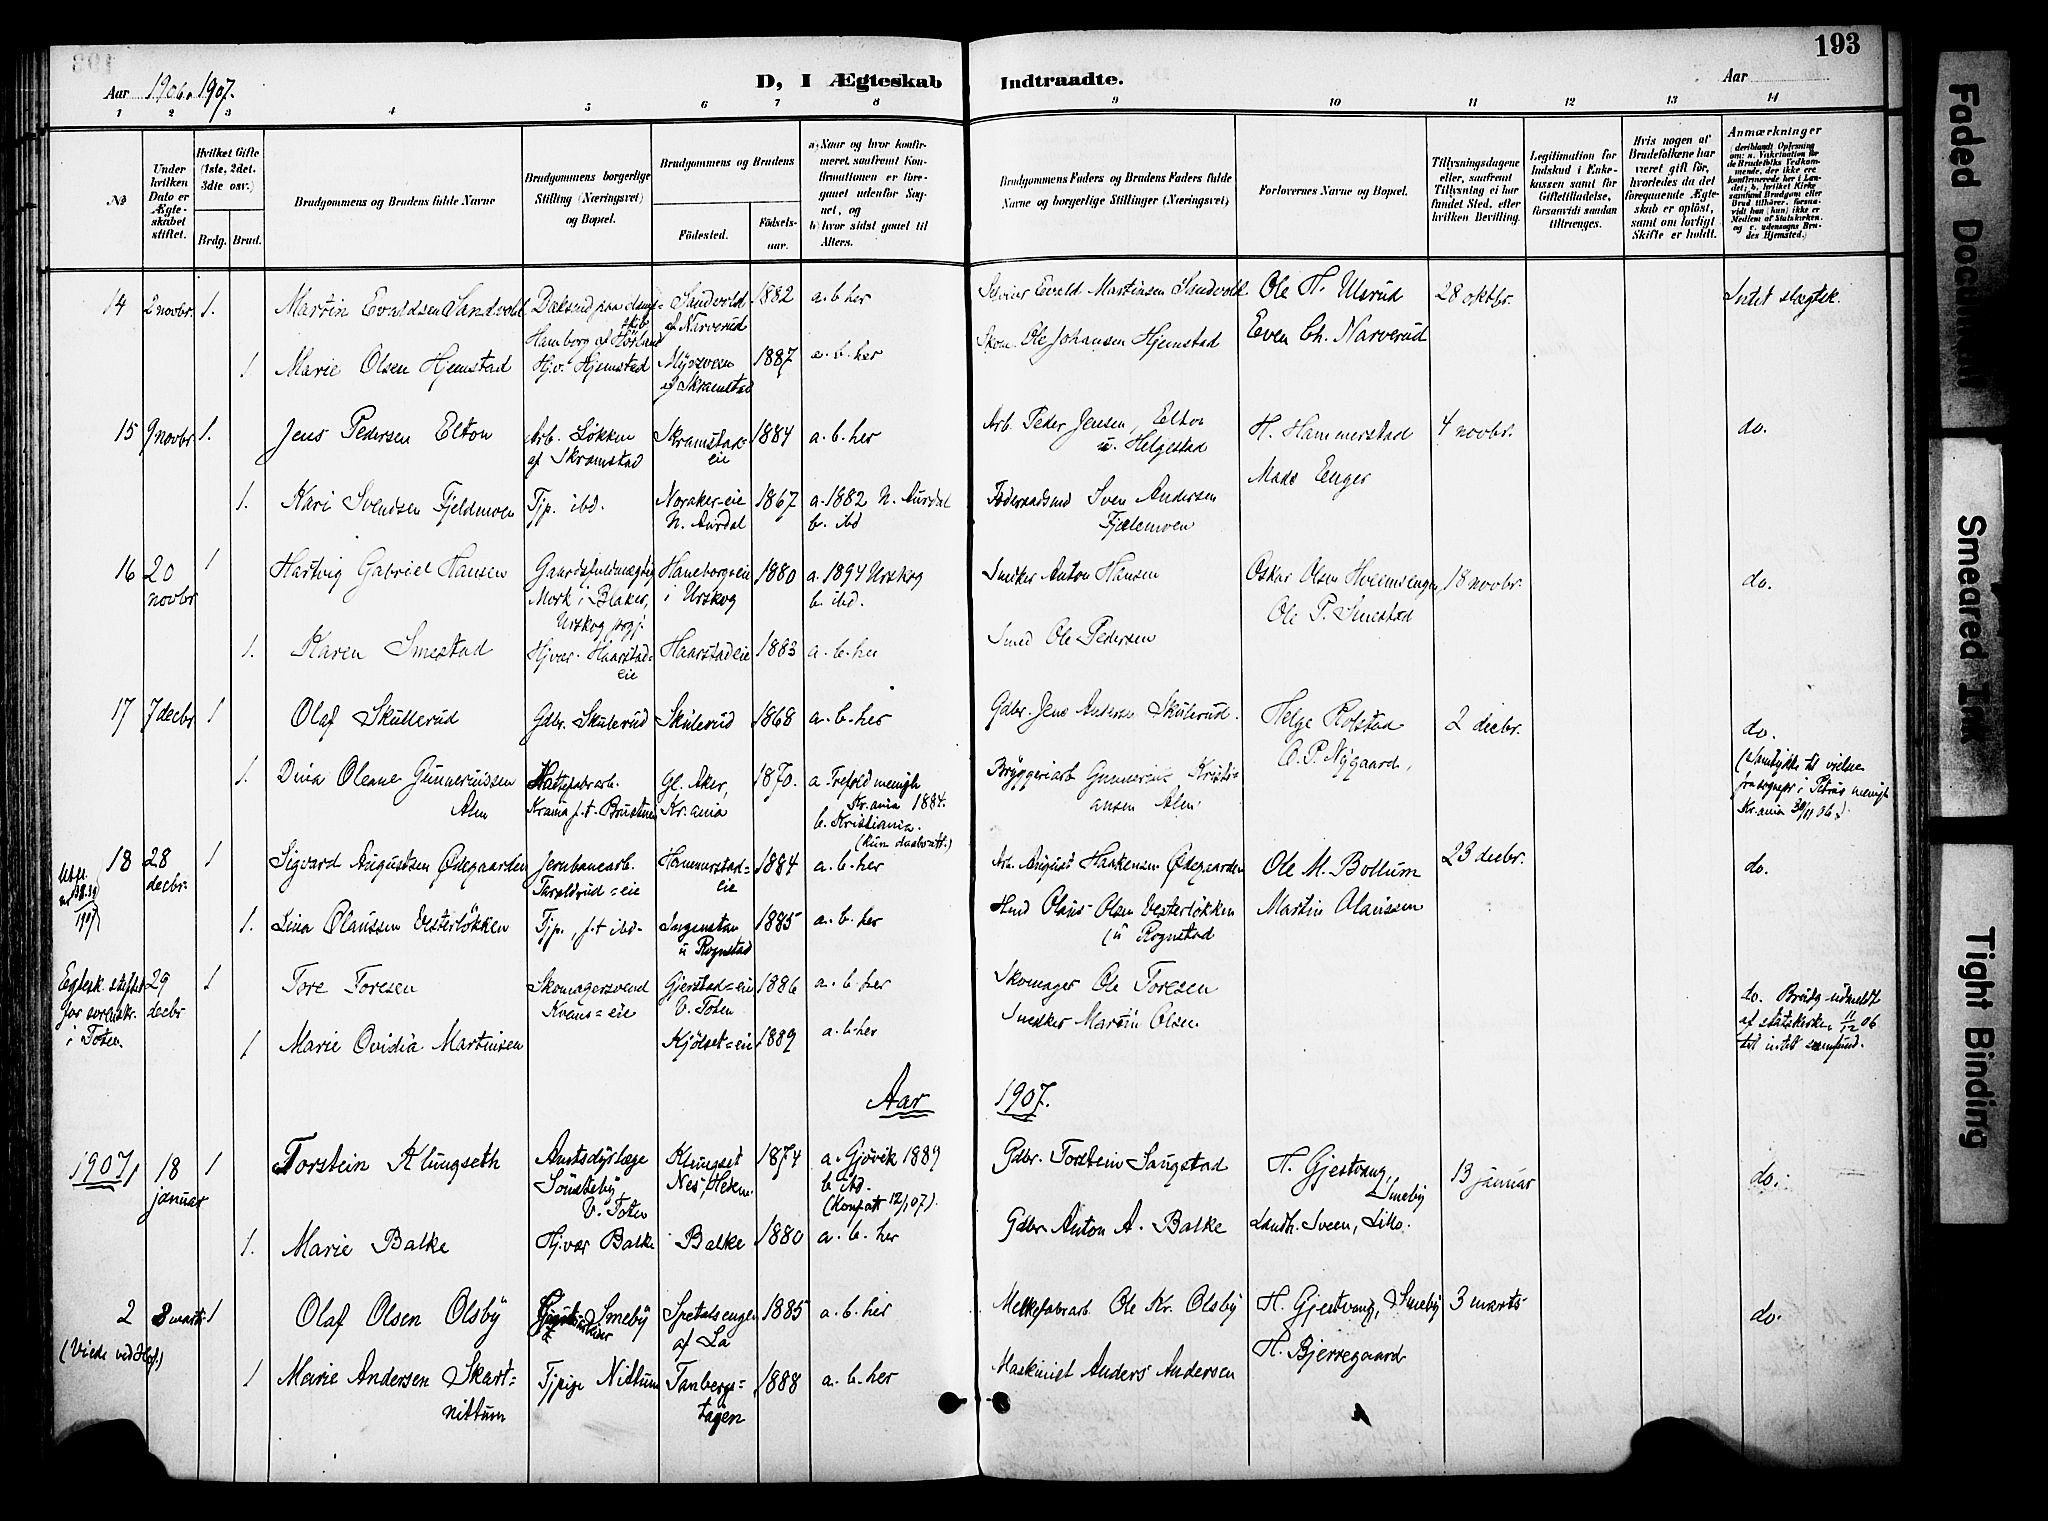 193
Aar 1906. 1907.
D, I Ægteskab Indtraadte.
Aar
1 2 3 4 5 6 7 8 9 10 11 12 13 14
No
Under hvilken Dato er Ægteskabet stiftet.
Hvilket Gifte (1ste, 2det, 3die osv.)
Brdg. Brud.
Brudgommens og Brudens fulde Navne
Brudgommens borgerlige Stilling (Næringsvei) og Bopæl.
Brudgommens og Brudens
Fødested.
Fødselsaar.
a) Naar og hvor konfirmeret, saafremt Konfirmationen er foregaaet udenfor Sognet, og
b) hvor sidst gaaet til Alters.
Brudgommens Faders og Brudens Faders fulde Navne og borgerlige Stillinger (Næringsvei)
Forlovernes Navne og Bopæl.
Tillysningsdagene eller, saafremt Tillysning ei har fundet Sted, efter hvilken Bevilling.
Legitimation for Indskud i Enkekassen samt for Giftetilladelse, forsaavidt saadan tiltrænges.
Hvis nogen af Brudefolkene har været gift før, hvorledes da det foregaaende Ægteskab er opløst, samt om lovligt Skifte er holdt.
Anmærkninger
14 2 novbr. 1. Martin Evaldsen Sandvold Sandvold af Narverud 1882 a. b. her Evald Martinsen Sandvold Ole H. Ulsrud 28 oktbr. Intet slægtsk.
1 Marie Olsen Hjemstad Hjv. Hjemstad af Skramstad 1887 a. b. her Skom. Ole Johansen Hjemstad Even Ch. Narverud
15 9 novbr. 1. Jens Pedersen Elton Arb. Løkken af Skramstad Skramstad=eie 1884 a. b. her Arb. Peder Jensen, Elton u. Helgestad H. Hammerstad 4 novbr. do.
1. Kari Svendsen Fjeldmoen Tjp. ibd. Noraker-eie N. Aurdal 1867 a. 1882 N. Aurdal b. ibd Sven Andersen Mads Enger
16 20 novbr 1 Hartvig Gabriel Hansen Mork i Blaker, Urskog prgj. Haneborgeie i Urskog 1880 a. 1894 Urskog b. ibd. Snekker Anton Hansen Oskar Olsen 18 novbr. do.
1. Karen Smestad Hjvær. Haarstad=eie Haarstadeie 1883 a. b. her Smed Ole Pedersen Ole P. Smestad
17 7 decbr 1 Olaf Skullerud Gdbr. Skulerud Skulerud 1868 a. b. her Gdbr. Jens Andersen Skulerud. Helge Rolstad 2 decbr. do.
1. Dina Oleane Gunneriussen Alm Gl. Aker, Kr.ania 1870. a. Trefold.menigh. Kr.ania 1884. b. Kristiania. Bryggeriarb Gunnerius Kristiansen Alm O. P. Nygaard,
18 28 decbr. 1 Sigvard Augustsen Ødegaarden Jernbanearb. Taraldrud=eie Hammerstad=eie 1884 a. b. her Arb. August Haakensen Ødegaarden Ole M. Bollum 23 decbr. do.
1. Lina Olaussen Vesterløkken Tjp., p.t ibd. u Rognstad 1885 a. b. her Olaus Olsen Vesterløkken (u Rognstad Martin Olaussen
Egtesk. stiftet for sorenskr. i Toten. 29 decbr 1 Tore Toresen Skomagersvend Kraus=eie Gjerstad=eie V. Toten 1886 a. b. her Skomager Ole Toresen do. Brudg. udmeldt af statskirken 11/12 06 til intet samfund.
1 Marie Ovidia Martinsen Kjølset=eie 1889 a. b. her Snedker Martin Olsen
Aar 1907.
1907, 1 18 januar 1 Torstein Klungseth Amtsdyrlæge Sønsteby V. Toten Klungset Nes, Hedm. 1874 a. Gjøvik 1889 b. ibd. (Konf.att 12/1 07). Gdbr. Torstein Saugstad H. Gjestvang, Smeby 13 januar do.
1. Marie Balke Hj.vær Balke Balke 1880 a. b. her Gdbr Anton A. Balke Landh. Sveen, Lillo.
2 8 marts 1 Olaf Olsen Olsby Smeby Spetalsengen af Laa 1885 a. b. her Melkefabrarb. Ole Kr. Olsby H. Gjestvang, Smeby 3 marts do.
(Viede ved Hof.)
1 Marie Andersen Skartnittum Tjpige Nittum Tanbergs=hagen 1888 a. b. her Maskinist Anders Andersen H. Bjerregaard
Faded Document
Smeared Ink
Tight Binding